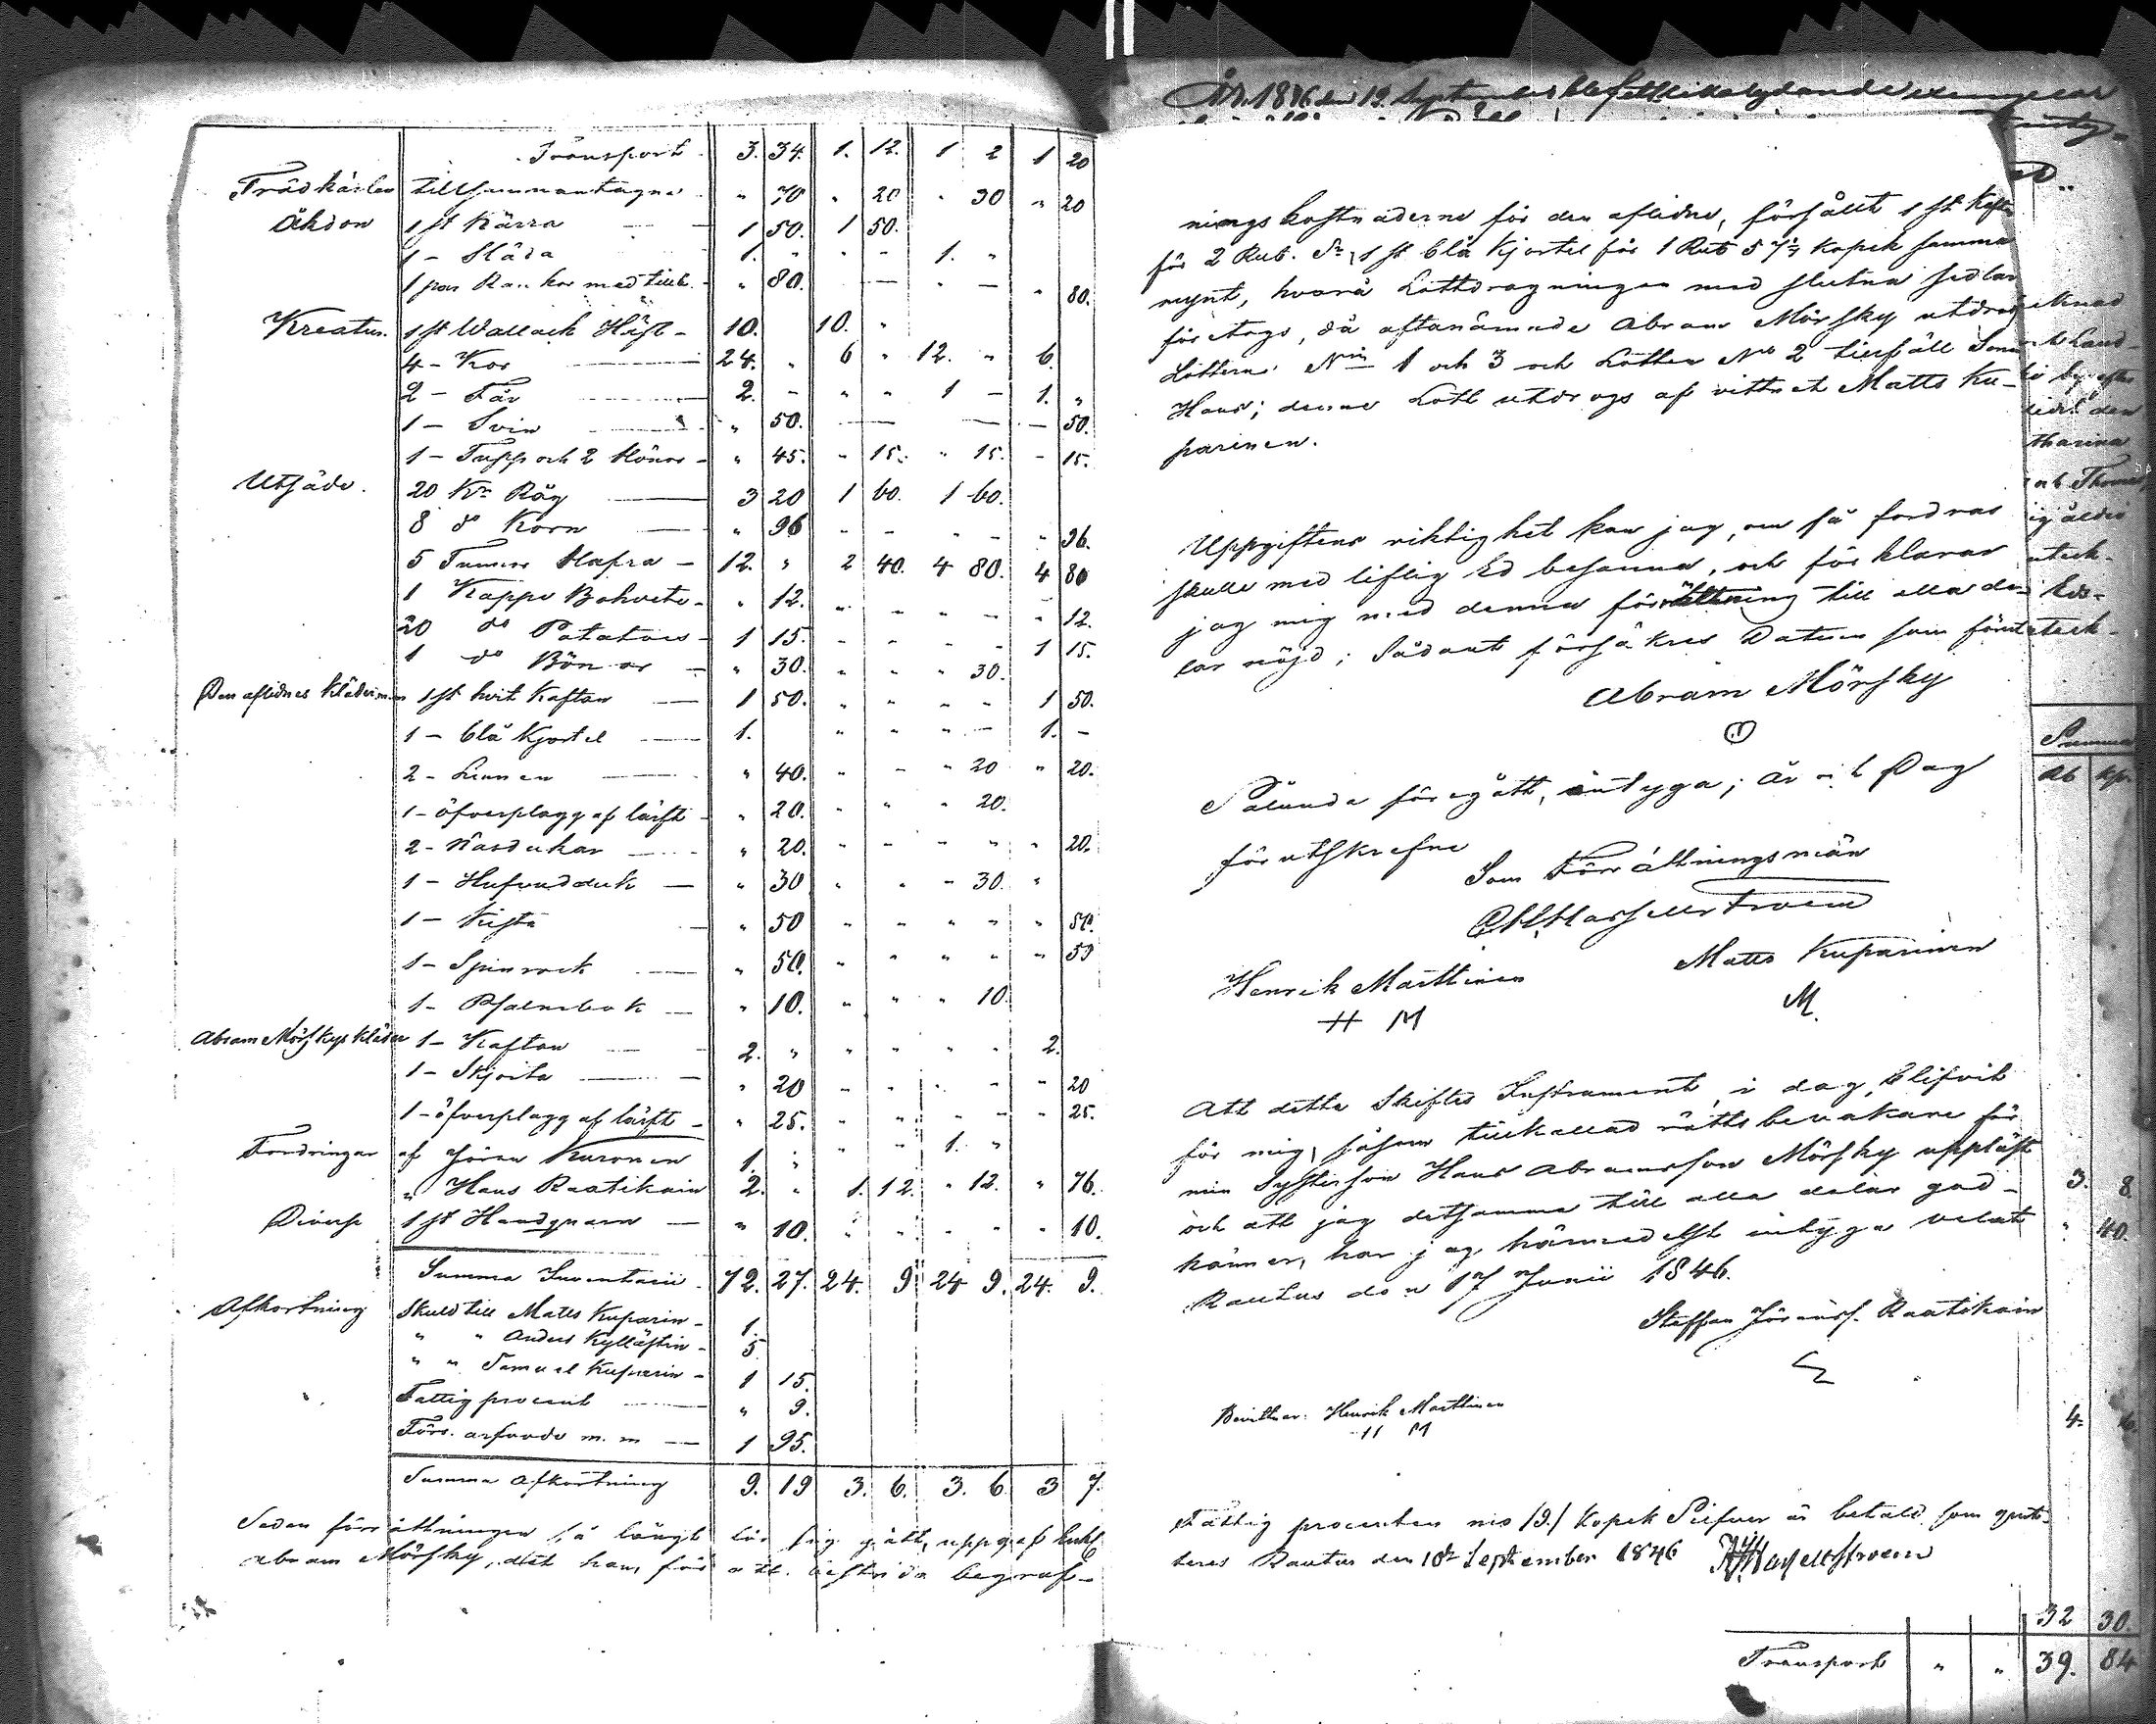 Transport 3. 34. 1. 12. 1 2 1 20
Trädkärlen tillsammantagne " 70 " 20 " 30 " 20
Åkdon 1 st Kärra 1 50. 1 50.
1 - Släda 1. " " - 1. "
1 par med " 80. — " — " 80.
Kreatur. 1 st Wallack Häst - 10. 10. "
4 - Kor 24. " 6 " 12. " 6.
2 - Får 2. - " " 1 - 1. "
1 - Svin " 50. — — — 50.
1 - Tupp och 2 Hönor - " 45. " 15. " 15. - 15.
Utsäde. 20 Kr Råg 3 20 1 60. 1 60.
8 do Korn " 96 - - - - " 96.
5 Tunnor Hafra - 12. " 2 40. 4 80. 4 80
1 Kappe Bohvete - " 12. " - - - " 12.
20 do Potatoes - 1 15. - - - - 1 15.
1 do Bönor - " 30. " " " 30.
Den aflidnes Kläder 1 st hvit Kaftan 1 50. " " " " 1 50.
1 - blå Kjortel 1. " " " - 1. -
2 - Linnen " 40. " - " 20 " 20.
1 - öfverplagg af lärft - " 20. " " " 20.
2 - Näsdukar " 20. - - - " " 20.
1 - Hufvudduk " 30 " " - 30. "
1 - Kista " 50 " " " " " 50.
1 - Spinrock " 50. " " " " " 50
1 - Psalmbok " 10. " " " 10.
Abram Mörskys kläder 1 - Kaftan 2. " " " " " 2.
1 - Skjorta " 20 - " " - " 20
1 - öfverplagg af lärft - " 25. " " " - " 25.
Fordringar af Jöran Kuronen 1. " " " 1. "
" Hans Raatikain 2. " 1. 12. " 12. " 76.
Diverse 1 st Handqvarn " 10. " " " " " 10.
Summa Inventarii 72. 27. 24. 9. 24 9. 24. 9.
Afkortning Skuld till Matts Kuparin - 1.
" " Anders Kyllästin - 5.
" " Samuel Kuparin - 1 15.
Fattig procent " 9.
Förr. arfvode m. m 1 95.
Summa Afkortning 9. 19 3. 6. 3. 6 3 7.
Sedan förrättningen så långt för sig gått, uppgaf
Abram Mörsky, att han, för att bestrida begraf-
År 1846 den 19 September
ningskostnaderne för den aflidne, försåldt 1 st
för 2 Rub. Sr, 1 st blå Kjortel för 1 Rub 5 7/7 Kopek samma
mynt, hvarå Lottdragningen med slutna sedlar
företogs, då oftanämnde Abram Mörsky utdrog
Lotterne Nris 1 och 3 och Lotten No 2 tillföll Sonen
Hans; denne Lott utdrogs af vittnet Matts Ku-
parinen.
Uppgiftens riktighet kan jag, om så fordras
skulle med liflig Ed besanna, och förklarar
jag mig med denna förrättning till alla de-
lar nöjd; Sådant försäkres Datum som förut
Abram Mörsky
Sålunda föregått, intyga; År och Dag
förutskrefne
Som Förrättningsmän
Matts Kuparinen
M.
Henrik Marttinen
H M
Att detta Skiftes Instrument, i dag, blifvit
för mig, såsom tillkallad rättsbevakare för
min Systerson Hans Abramsson Mörsky uppläst
och att jag detsamma till alla delar god-
känner, har jag härmedelst intyga velat
Rautus den 17 Junii 1846.
Steffan Jöranss. Raatikain
Bevittnar: Henrik Marttinen
H M
Fattig procenten nio /9./ Kopek Silfver är betald, som qvit-
teras Rautus den 10de September 1846
Summa
Rb Kp.
3. 8.
" 40.
32 30.
Transport " " 39. 84